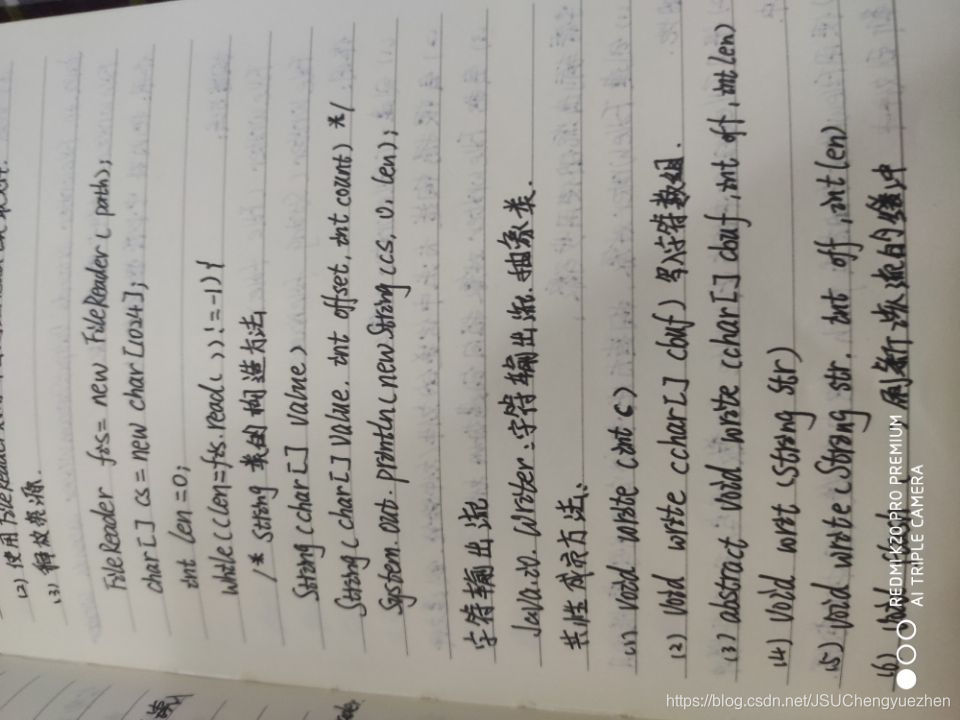 (2) 使用FileReader
(3) 释放资源.
FileReader fis = new FileReader( path);
char[] cs = new char[1024];
int len =0;
while((len=fis.read( ))!=-1){
/* String 类的构造方法
String (char[] value)
String (char[] value, int offset, int count) */
System.out.println(new String (cs, 0, len);
字符输出流
Java.io.Writer:字符输出流.抽象类.
共性成员方法、
(1) void write (int c)
(2) void write (char[] cbuf) 写入字符数组.
(3) abstract void write (char[] cbuf, int off, int len)
(4) void wret (String str)
(5) void write (String str, int off, int len)
(6) void 刷新该流的缓冲
REDMI K20 PRO PREMIUM
AI TRIPLE CAMERA
https://blog.csdn.net/JSUChengyuezhen